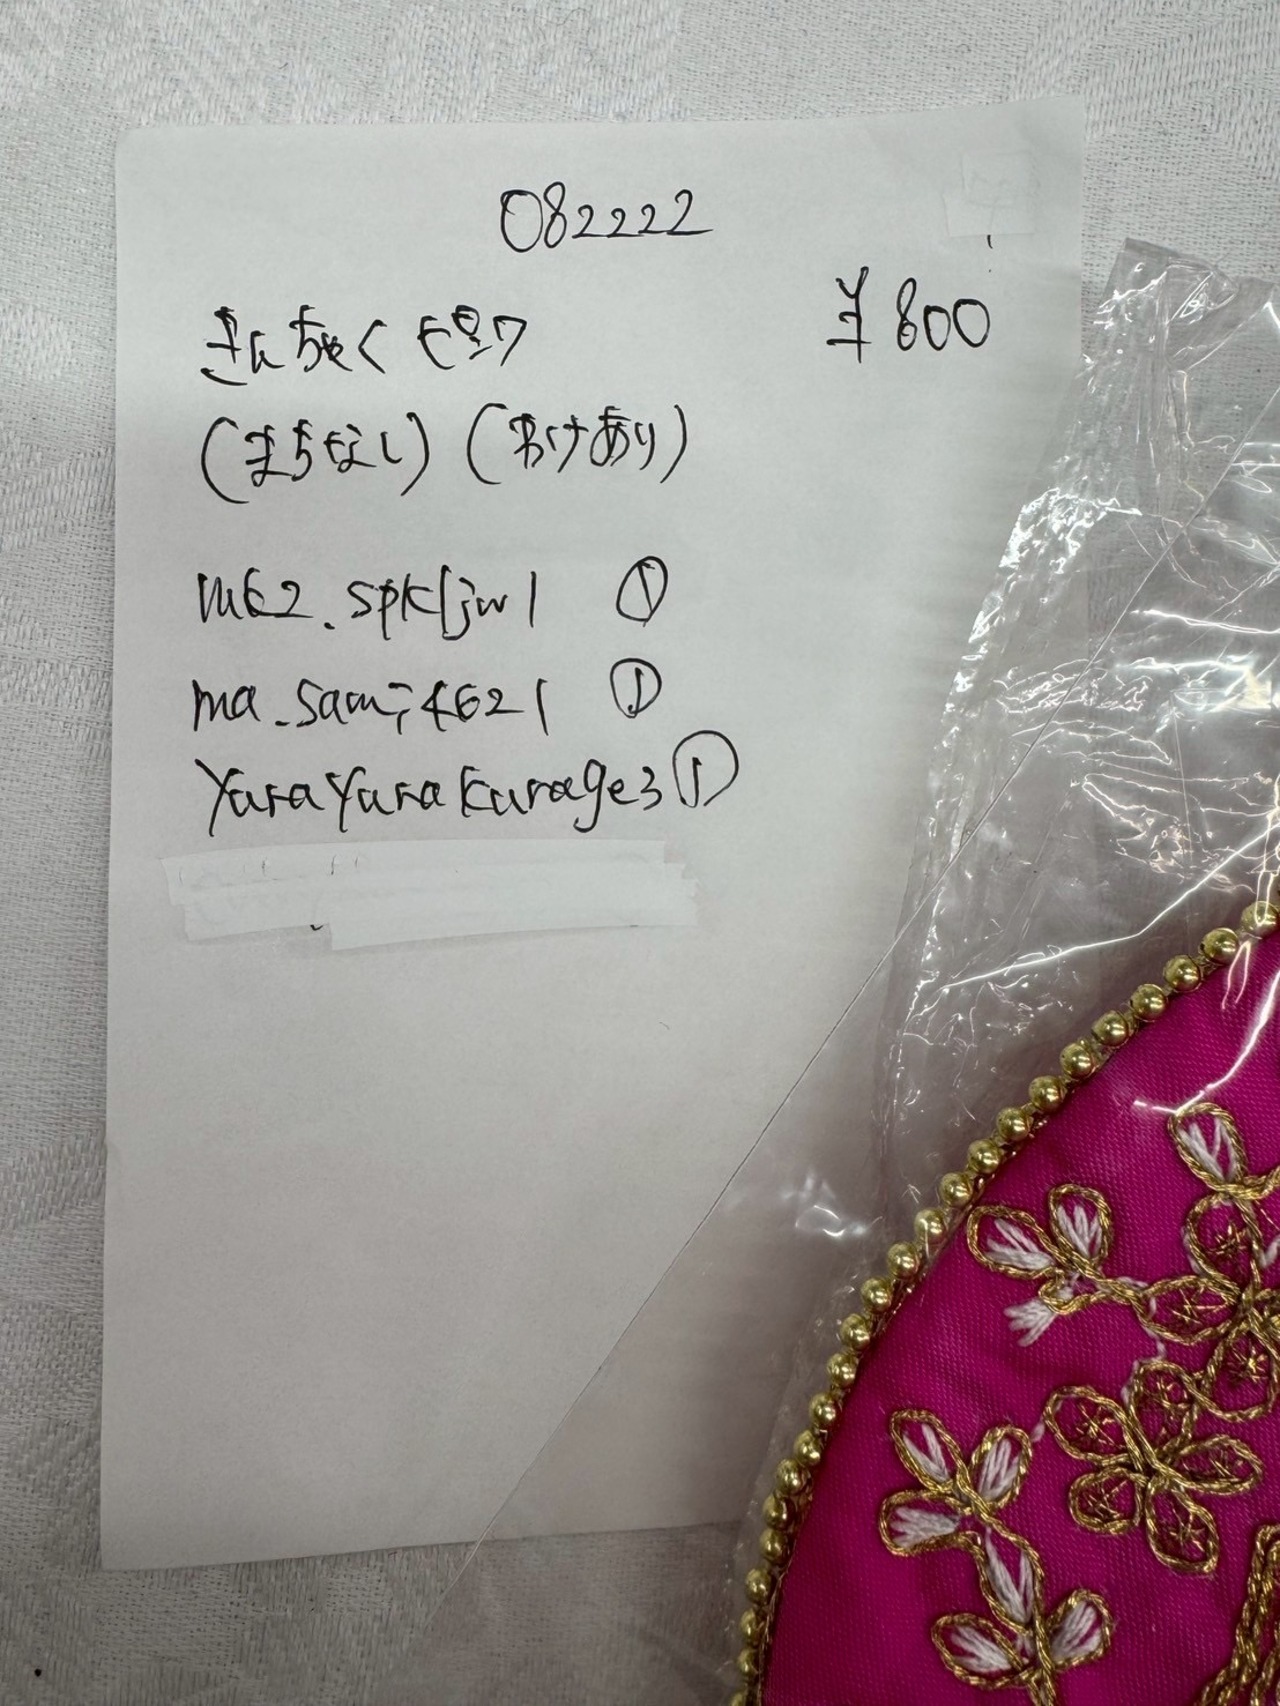 082222
¥800
きんちゃくピンク
(まちなし) (わけあり)
m62.spkljw1 ①
ma_sami4621 ①
YuraYuraKurage3 ①